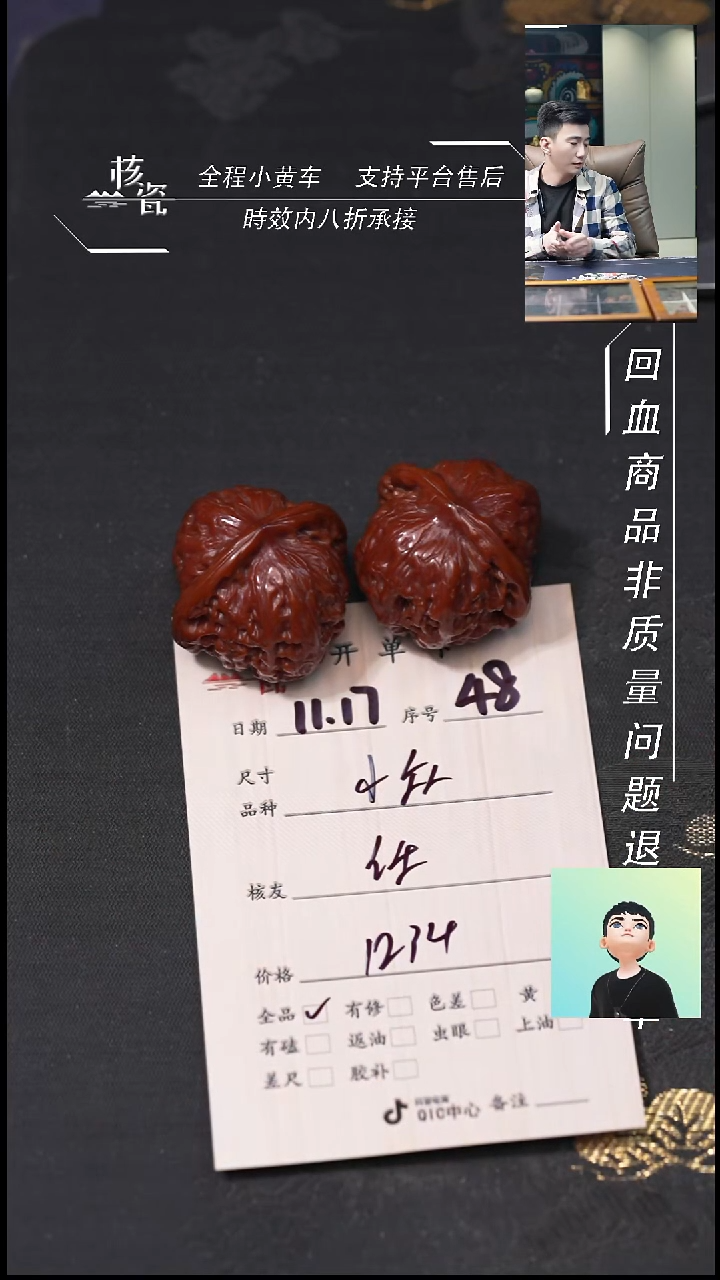 核瓷
全程小黄车 支持平台售后
時效内八折承接
回血商品非质量问题退
开单
日期 11.17 序号 48
尺寸
品种
核友
价格 1234
全品 ✓ 有修 色差 黄
有磕 返油 虫眼 上油
差尺 胶补
QIC中心 备注